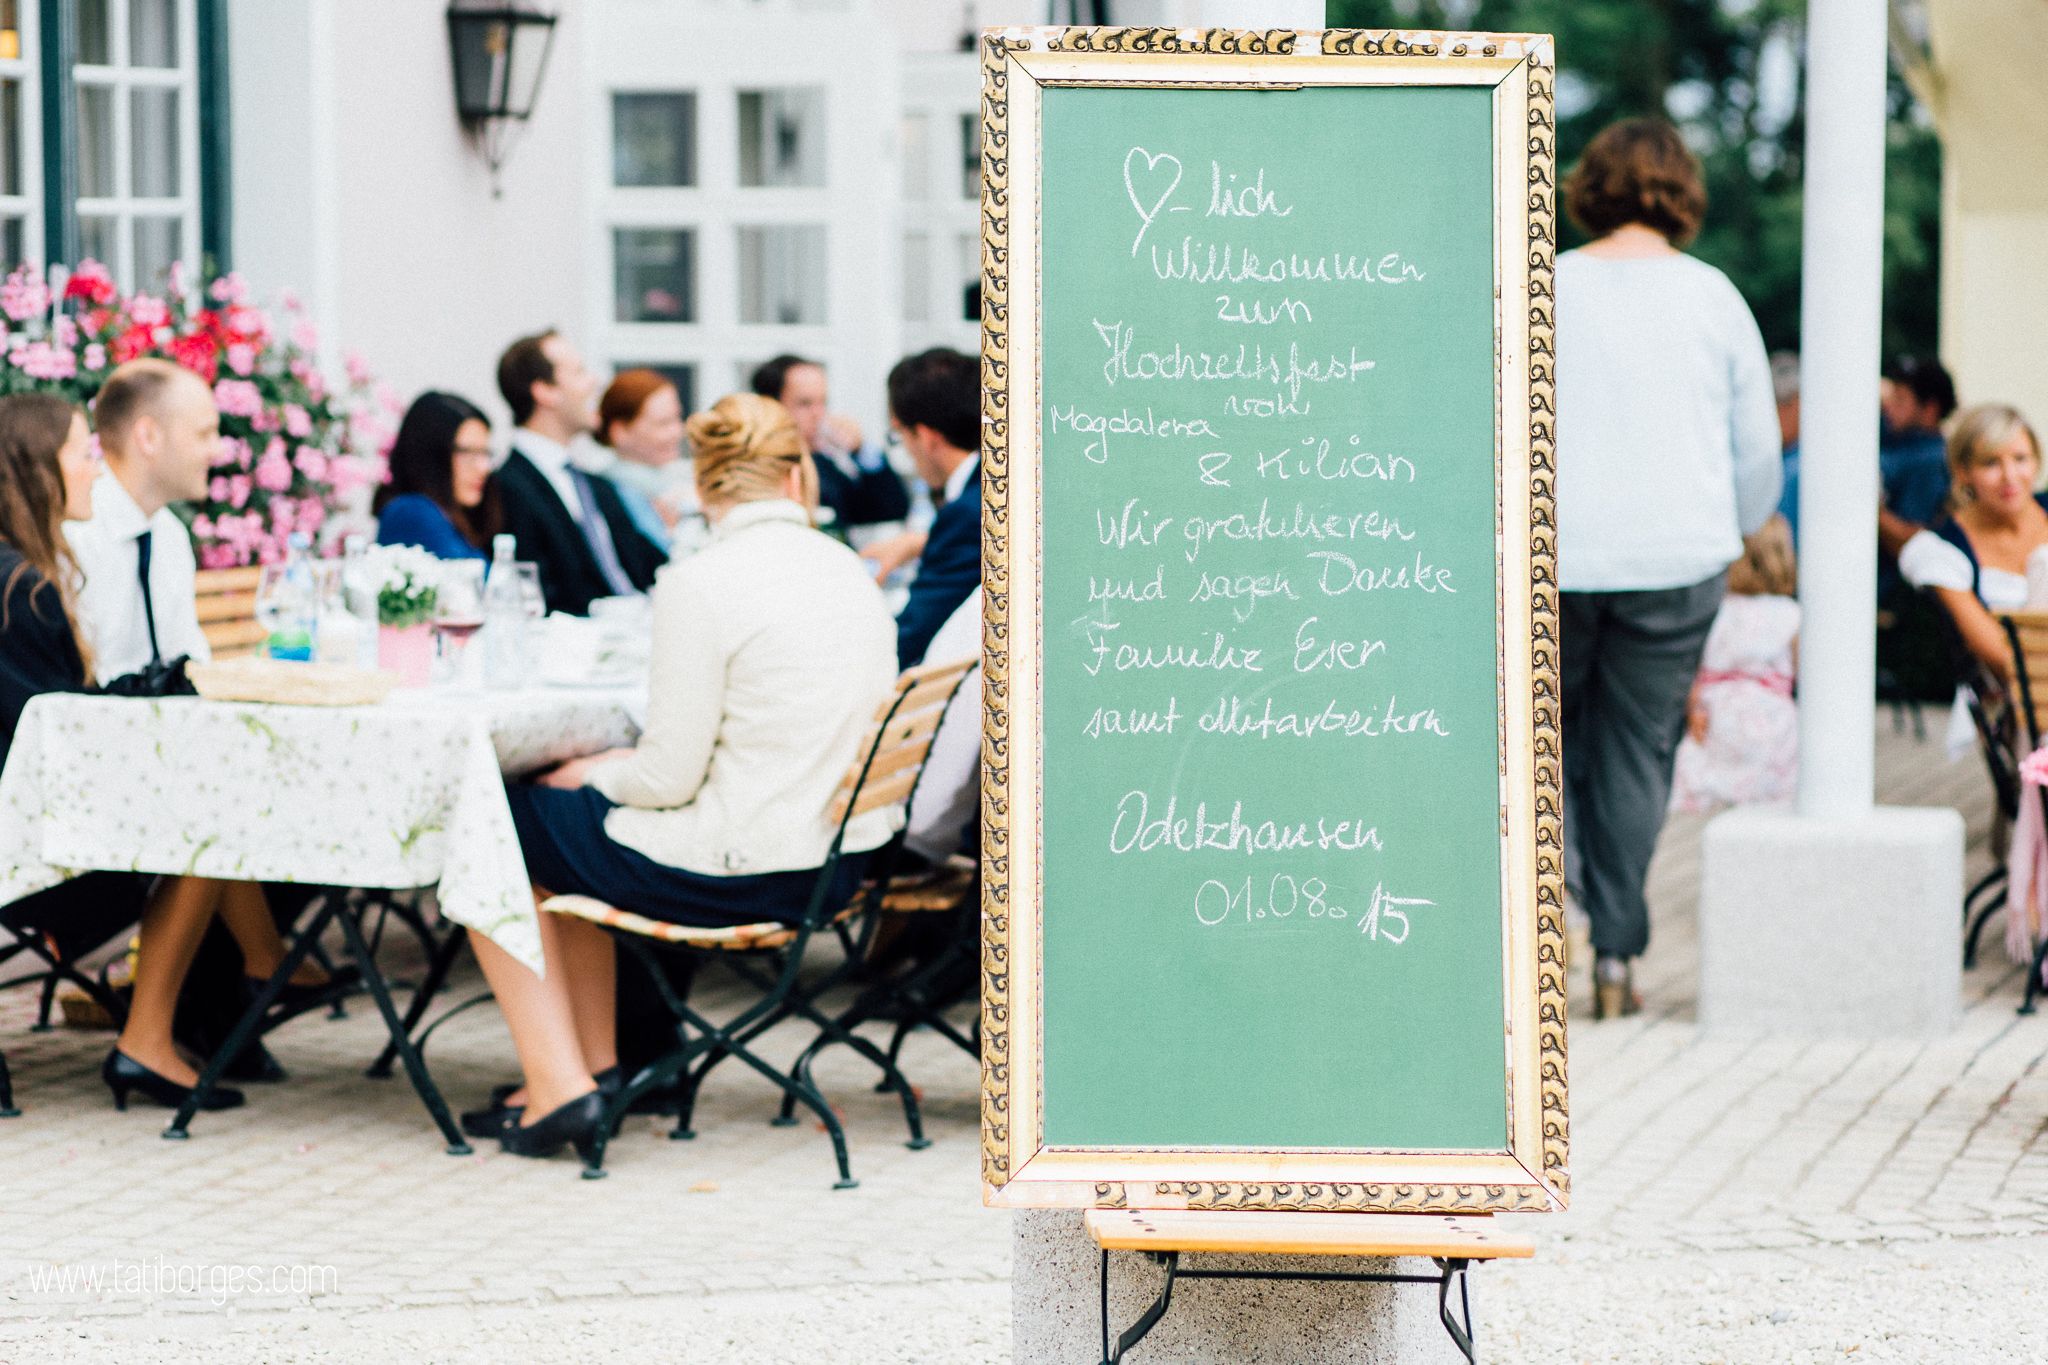 ♡-lich
Willkommen
zum
Hochzeitsfest
von
Magdalena
& Kilian
Wir gratulieren
und sagen Danke
Familie Eser
samt Mitarbeitern
Odelzhausen
01.08.15
www.tatiborges.com